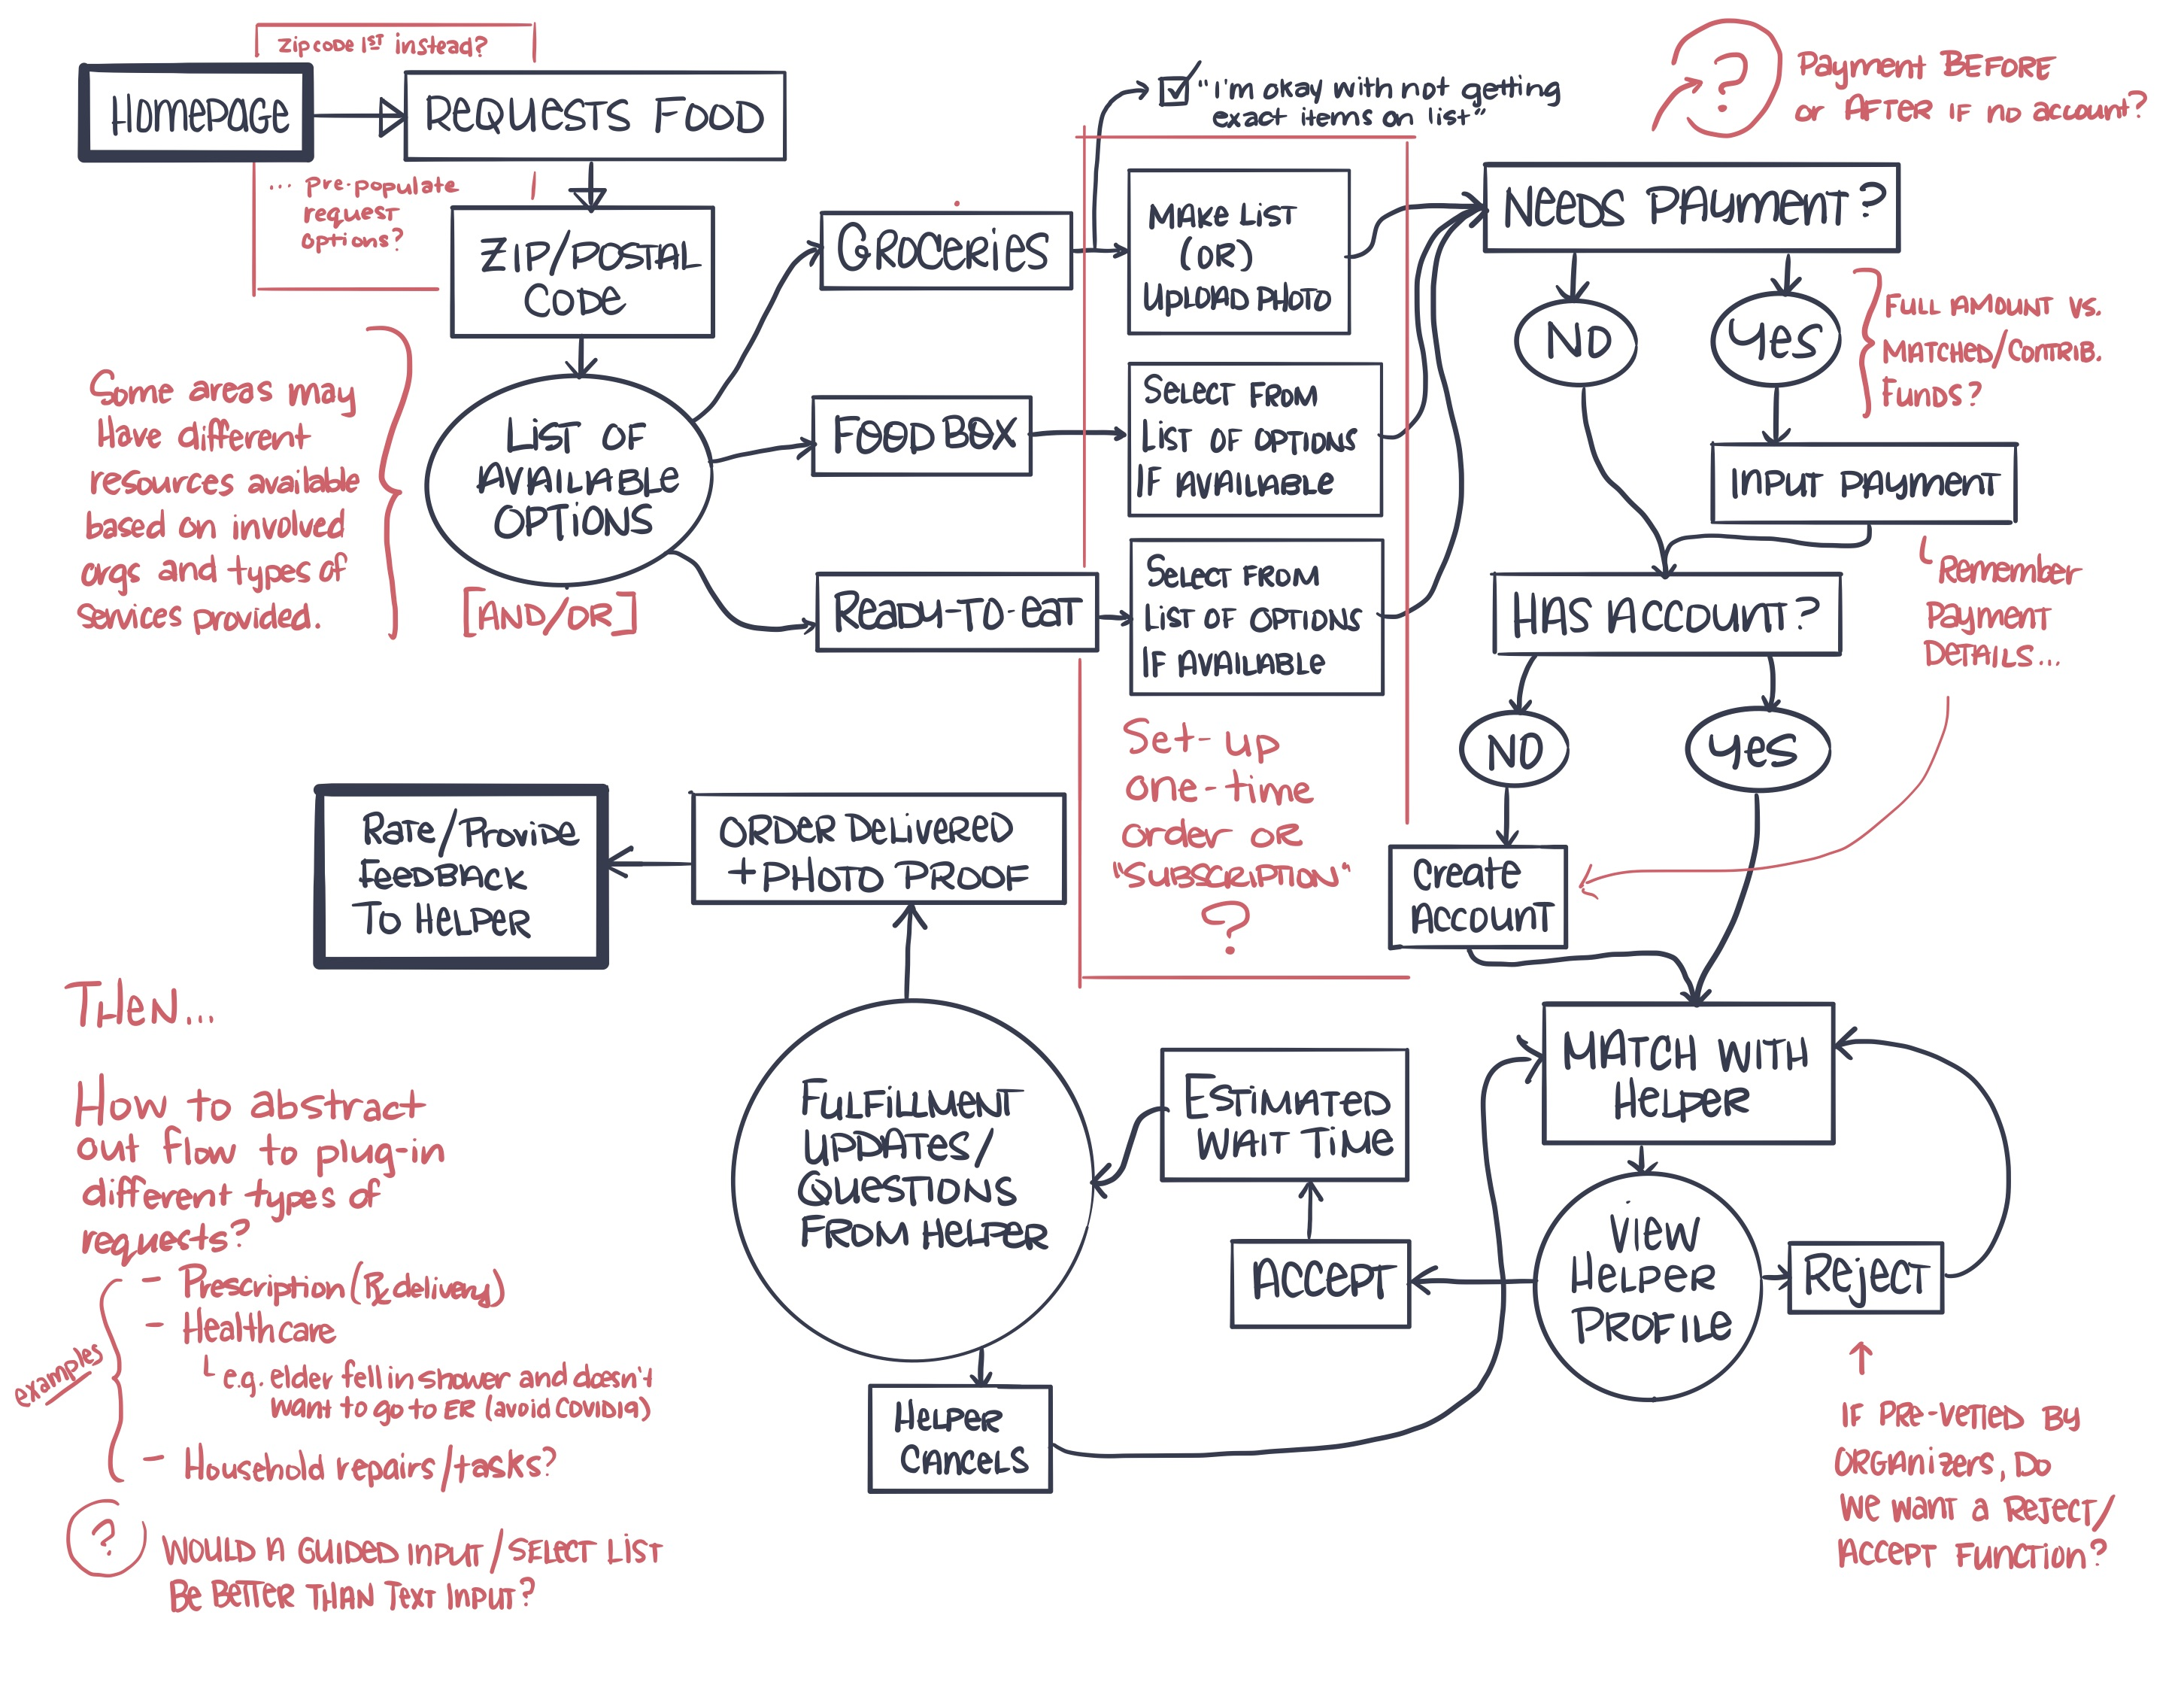 zipcode 1ST instead?
HomePAGE
ReQUeSTS FOOD
... Pre-populate
request
options?
ZIP/POSTAL
CODE
Some areas may
Have different
resources available
based on involved
orgs and types of
services provided.
LiST OF
AVAILABLE
OPTIONS
[AND/OR]
GROCERieS
FOOD BOX
ReADY-TO-eAT
"I'm okay with not getting
exact items on list"
MAKE LiST
(OR)
UPLOAD PHOTO
SeLeCT FROM
LiST OF OPTIONS
IF AVAILABLE
SeLeCT FROM
LiST OF OPTIONS
IF AVAILABLE
Set-up
one-time
order or
"SUBSCRIPTION"
?
?
Payment BEFORE
or AFTER IF no account?
NeeDS PAYmeNT?
NO
YeS
FULL AMOUNT VS.
MATCHED/CONTRIB.
FUNDS?
INPUT PAYMENT
Remember
Payment
DETAILS...
HAS ACCOUNT?
NO
YeS
Create
ACCOUNT
MATCH WITH
HeLPeR
VieW
HeLPeR
PROFILE
ReJeCT
↑
IF PRE-VETTED BY
ORGANIZERS, DO
WE WANT A REJECT/
ACCEPT FUNCTION?
ACCEPT
ESTIMATED
WAIT TIME
FULFiLLMENT
UPDATES/
QUESTIONS
FROM HELPER
HeLPeR
CANCELS
ORDER DeLiVeReD
+ PHOTO PROOF
RaTe/PROViDe
FeeDBACK
TO HeLPeR
THEN...
How to abstract
out flow to plug-in
different types of
requests?
examples
- Prescription (Rx delivery)
- Healthcare
e.g. elder fell in shower and doesn't
want to go to ER (avoid COVID19)
- Household repairs/tasks?
?
WOULD A GUIDED INPUT/SELECT LIST
BE BETTER THAN TEXT INPUT?